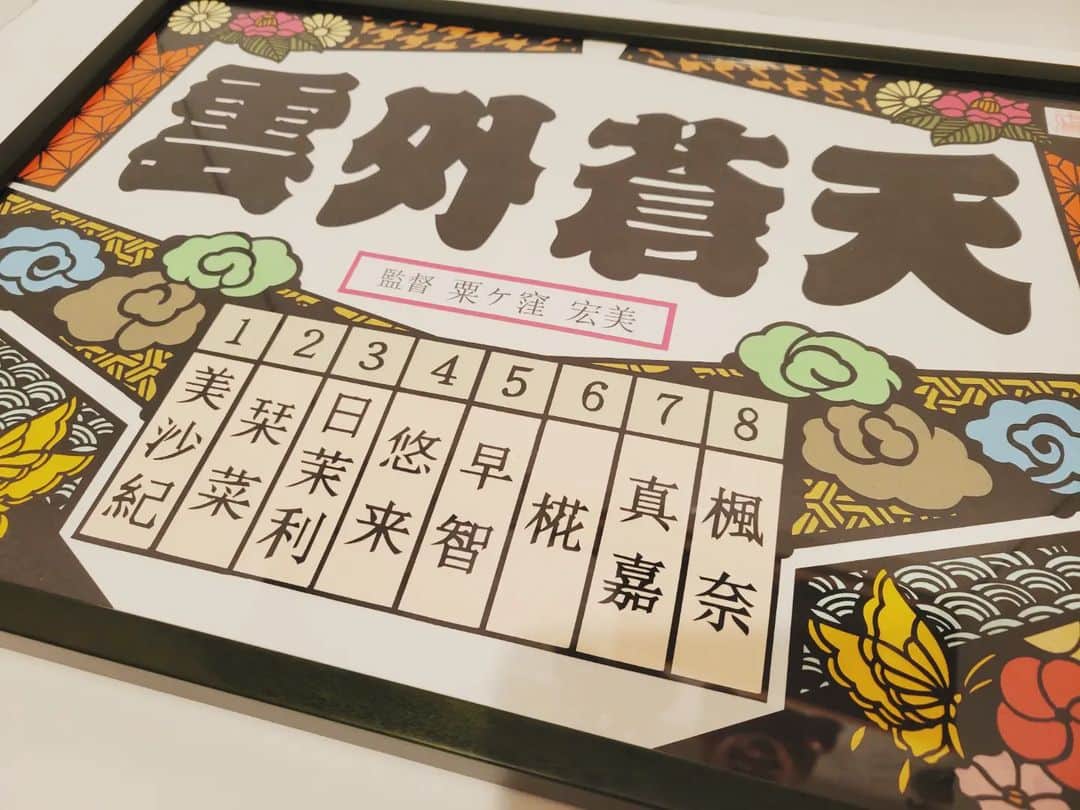 雲外蒼天
監督 粟ケ窪 宏美
1 2 3 4 5 6 7 8
美沙紀
栞菜
日茉利
悠来
早智
椛
真嘉
楓奈